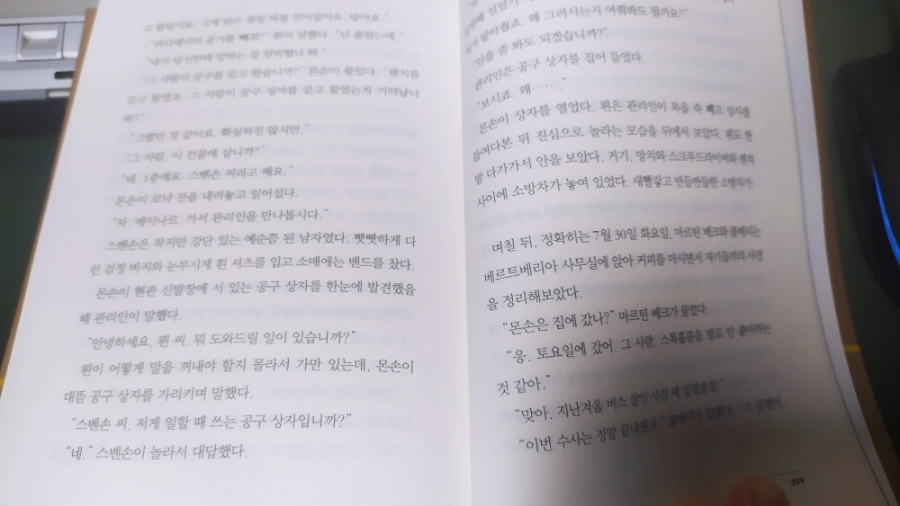 "그 사람이 공구를 갖고 왔습니까?" 몬손이 물었다. "렌치를
갖고 왔겠죠. 그 사람이 공구 상자를 갖고 왔었는지 기억납니
까?"
"그랬던 것 같아요. 확실하진 않지만."
"그 사람, 이 건물에 삽니까?"
"네. 1층에요. 스벤손 씨라고 해요."
몬손이 코냑 잔을 내려놓고 일어섰다.
"자, 에이나르. 가서 관리인을 만나봅시다."
스벤손은 작지만 강단 있는 예순쯤 된 남자였다. 빳빳하게 다
린 검정 바지와 눈부시게 흰 셔츠를 입고 소매에는 밴드를 찼다.
몬손이 현관 신발장에 서 있는 공구 상자를 한눈에 발견했을
때 관리인이 말했다.
"안녕하세요, 뢴 씨. 뭐 도와드릴 일이 있습니까?"
뢴이 어떻게 말을 꺼내야 할지 몰라서 가만 있는데, 몬손이
대뜸 공구 상자를 가리키며 말했다.
"스벤손 씨, 저게 일할 때 쓰는 공구 상자입니까?"
"네." 스벤손이 놀라서 대답했다.
왜 그러시는지 여쭤봐도 될까요?"
"안을 좀 봐도 되겠습니까?"
관리인은 공구 상자를 집어 들었다.
"보시죠. 왜……."
몬손이 상자를 열었다. 뢴은 관리인이 목을 죽 빼고 상자를
들여다본 뒤 진심으로 놀라는 모습을 뒤에서 보았다. 뢴도 한
발 다가가서 안을 보았다. 거기, 망치와 스크루드라이버와 렌치
사이에 소방차가 놓여 있었다. 새빨갛고 반들반들한 소방차가.
며칠 뒤, 정확히는 7월 30일 화요일, 마르틴 베크와 콜베리는
베스트베리아 사무실에 앉아 커피를 마시면서 자기들끼리 사건
을 정리해보았다.
"몬손은 집에 갔나?" 마르틴 베크가 물었다.
"응. 토요일에 갔어. 그 사람, 스톡홀름을 별로 안 좋아하는
것 같아."
"맞아. 지난겨울 버스 살인 사건 때
"이번 수사는 정말 끝나겠지." 콜베리가 말했다.
289